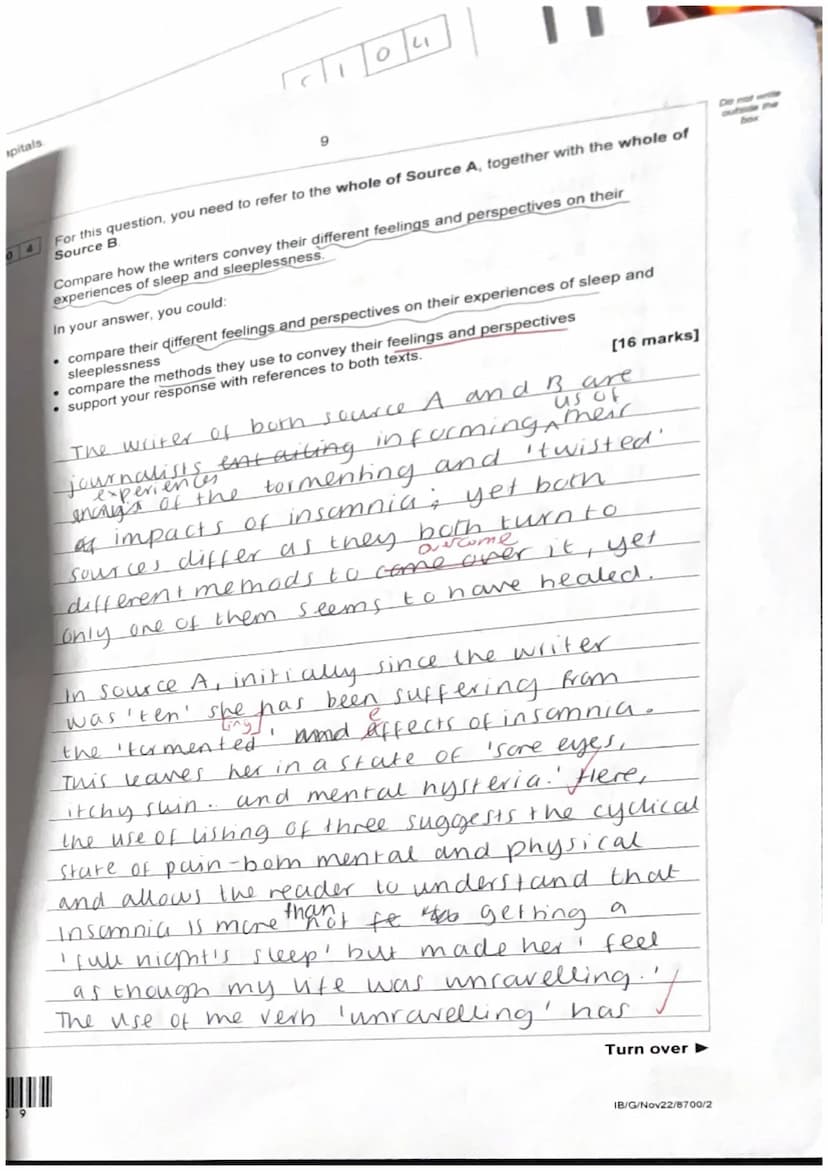 0 4
Do not write
outside the
box
9
apitals
0 4
For this question, you need to refer to the whole of Source A, together with the whole of
Source B.
Compare how the writers convey their different feelings and perspectives on their
experiences of sleep and sleeplessness.
In your answer, you could:
• compare their different feelings and perspectives on their experiences of sleep and
sleeplessness
• compare the methods they use to convey their feelings and perspectives
• support your response with references to both texts.
[16 marks]
The writer of both source A and B are
journalists entailing informing us of their
experiences of the tormenting and 'twisted'
impacts of insomnia; yet both
sources differ as they both turn to
different methods to come over overcome it, yet
only one of them seems to have healed.
In source A, initially since the writer
was 'ten' she has been suffering from
the 'tormented' [ing] and effects of insomnia.
This leaves her in a state of 'sore eyes,
itchy skin. and mental hysteria.' Here,
the use of listing of three suggests the cyclical
state of pain-both mental and physical
and allows the reader to understand that
insomnia is more than not getting a
'full night's sleep' but made her 'feel
as though my life was unravelling.'
The use of the verb 'unravelling' has
Turn over ►
9
IB/G/Nov22/8700/2